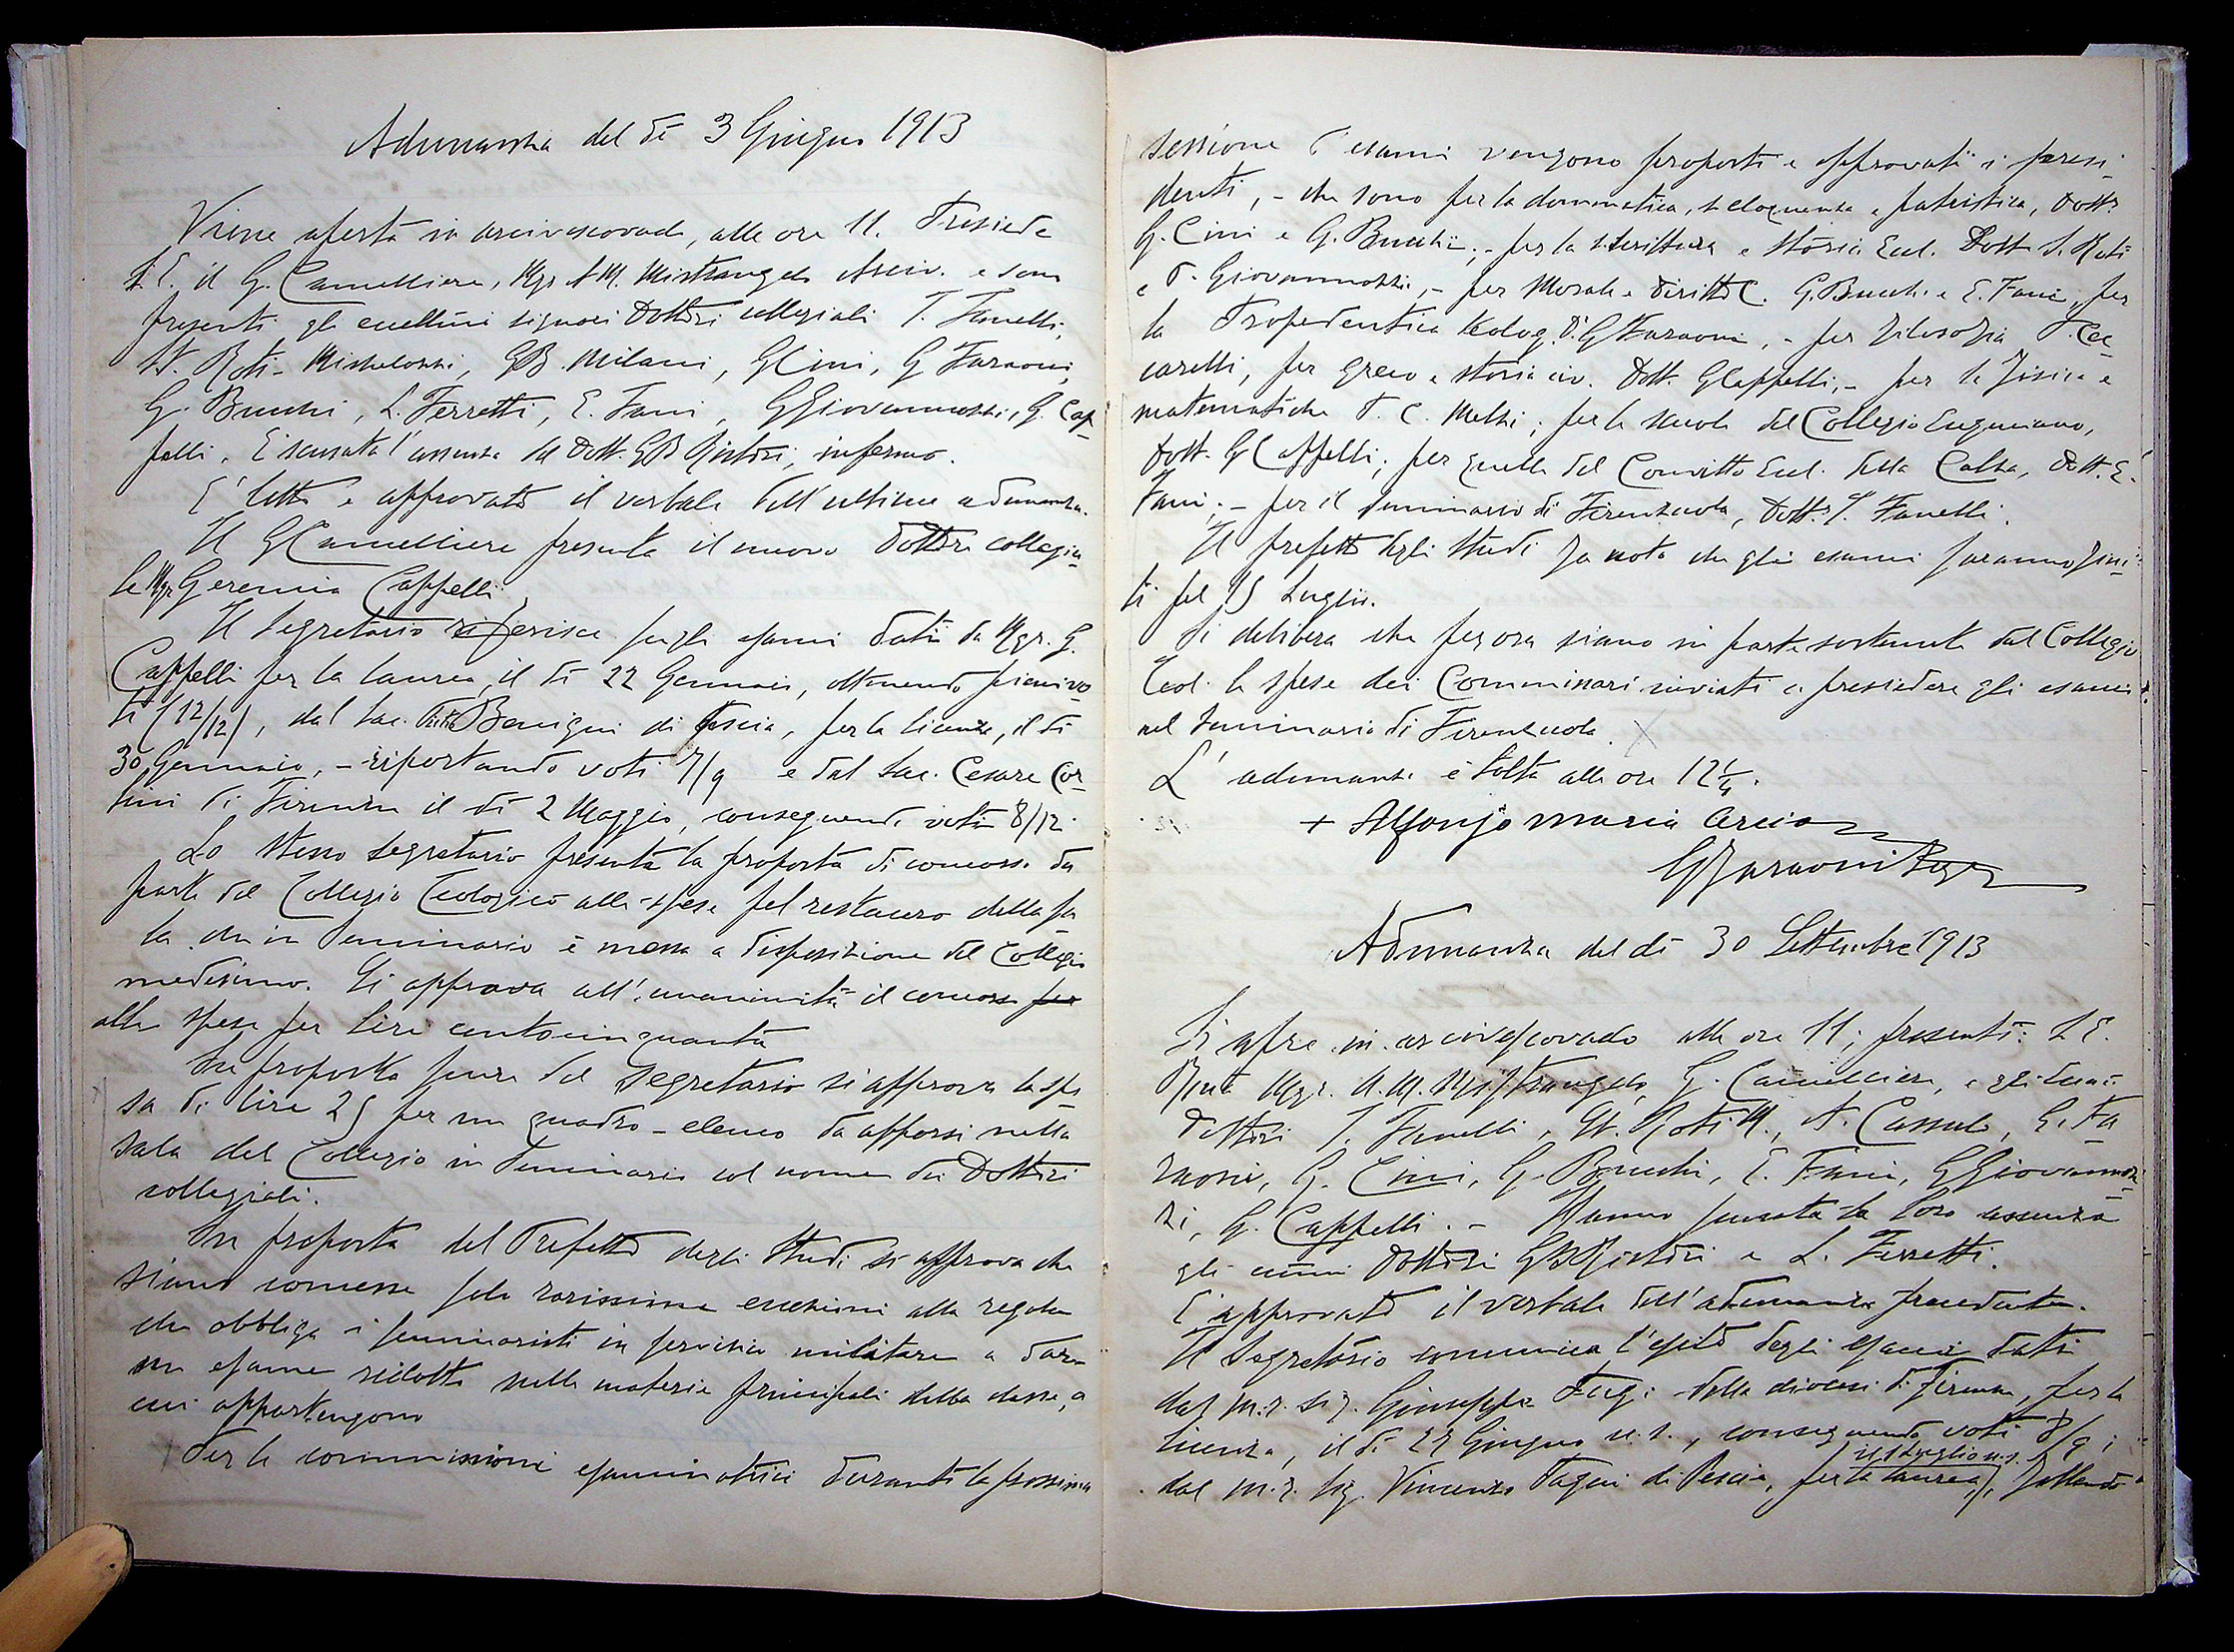 Adunanza del dì 3 Giugno 1913
Viene aperta in arcivescovado, alle ore 11. Presiede
S. E. il G. Cancelliere, Mgr A M. Mistrangelo Arciv. e sono
presenti gli eccellmi signori Dottori collegiali T. Fanelli,
St. Roti-Michelozzi, GB. Milani, G Cini, G Faraoni,
G. Bucchi, L. Ferretti, E. Fani, G Giovannozzi, G. Cap
pelli. È scusata l'assenza del Dott. GB Ristori, infermo.
È letto e approvato il verbale dell'ultima adunanza.
Il G Cancelliere presenta il nuovo Dottore collegia
le Mgr Geremia Cappelli
Il Segretario riferisce sugli esami dati da Mgr. G.
Cappelli per la laurea, il dì 22 Gennaio, ottenendo pieni vo
ti (12/12), dal sac. Benigni di Pescia, per la licenza, il dì
30 Gennaio, - riportando voti 7/9 e dal sac. Cesare Cor
sini di Firenze il dì 2 Maggio, conseguendo voti 8/12.
Lo stesso segretario presenta la proposta di concorso da
parte del Collegio Teologico alle spese pel restauro della sa
la che in Seminario è messa a disposizione del Collegio
medesimo. Si approva all'unanimità il concorso per
alla spesa per lire centocinquanta
Su proposta pure del segretario si approva la spe
sa di lire 25 per un quadro-elenco da apporsi nella
sala del Collegio in Seminario col nome dei Dottori
collegiali.
Su proposta del Prefetto degli Studi si approva che
siano concesse solo rarissime eccezioni alla regola
che obbliga i seminaristi in servizio militare a dare
un esame ridotto nelle materie principali della classe, a
cui appartengono
Per le commissioni esaminatrici durante la prossima
sessione d'esami vengono proposti e approvati i presi-
denti, - che sono per la dommatica, s. eloquenza e patristica, Dottr
G. Cini e G. Bucchi; - per la s. scrittura e storia Eccl. Dott S. Roti
e D. Giovannozzi, - per Morale e diritto C. G. Bucchi e E. Fani, per
la Propedeutica teolog. D. G Faraoni, - per filosofia T. Cec
carelli, per greco e storia civ. Dott. G Cappelli, - per la fisica e
matematiche D. C. Melzi; per le scuole del Collegio Eugeniano,
Dott. G Cappelli; per quelle del Convitto Eccl. della Calza, Dott. E.
Fani; - per il seminario di Firenzuola, Dottr T. Fanelli.
Il prefetto degli studi fa nota che gli esami saranno fini-
ti pel 15 Luglio.
Si delibera che per ora siano in parte sostenute dal Collegio
Teol. le spese dei Commissari inviati a presiedere gli esami
nel seminario di Firenzuola. X
L'adunanza è tolta alle ore 12 1/4.
+ Alfonso Maria Arciv
G Faraoni Segr
Adunanza del dì 30 Settembre 1913
Si apre in arcivescovado alle ore 11; presenti: S. E.
Rma Mgr. A. M. Mistrangelo, G. Cancelliere, e gli eccmi
dottori T. Fanelli, St. Roti M., A. Cassulo, G. Fa
raoni, G. Cini, G. Bucchi, E. Fani, G Giovannoz
zi, G. Cappelli. - Hanno scusata la loro assenza
gli eccmi Dottori GB Ristori e L. Ferretti.
È approvato il verbale dell'adunanza precedente.
Il Segretario comunica l'esito degli esami dati
dal m. r. sig. Giuseppe Fugi della diocesi di Firenze, per la
licenza, il dì 27 Giugno u. s., conseguendo voti 8/9;
il Luglio u. s.
dal m. r. sig. Vincenzo Pagni di Pescia, per la laurea,